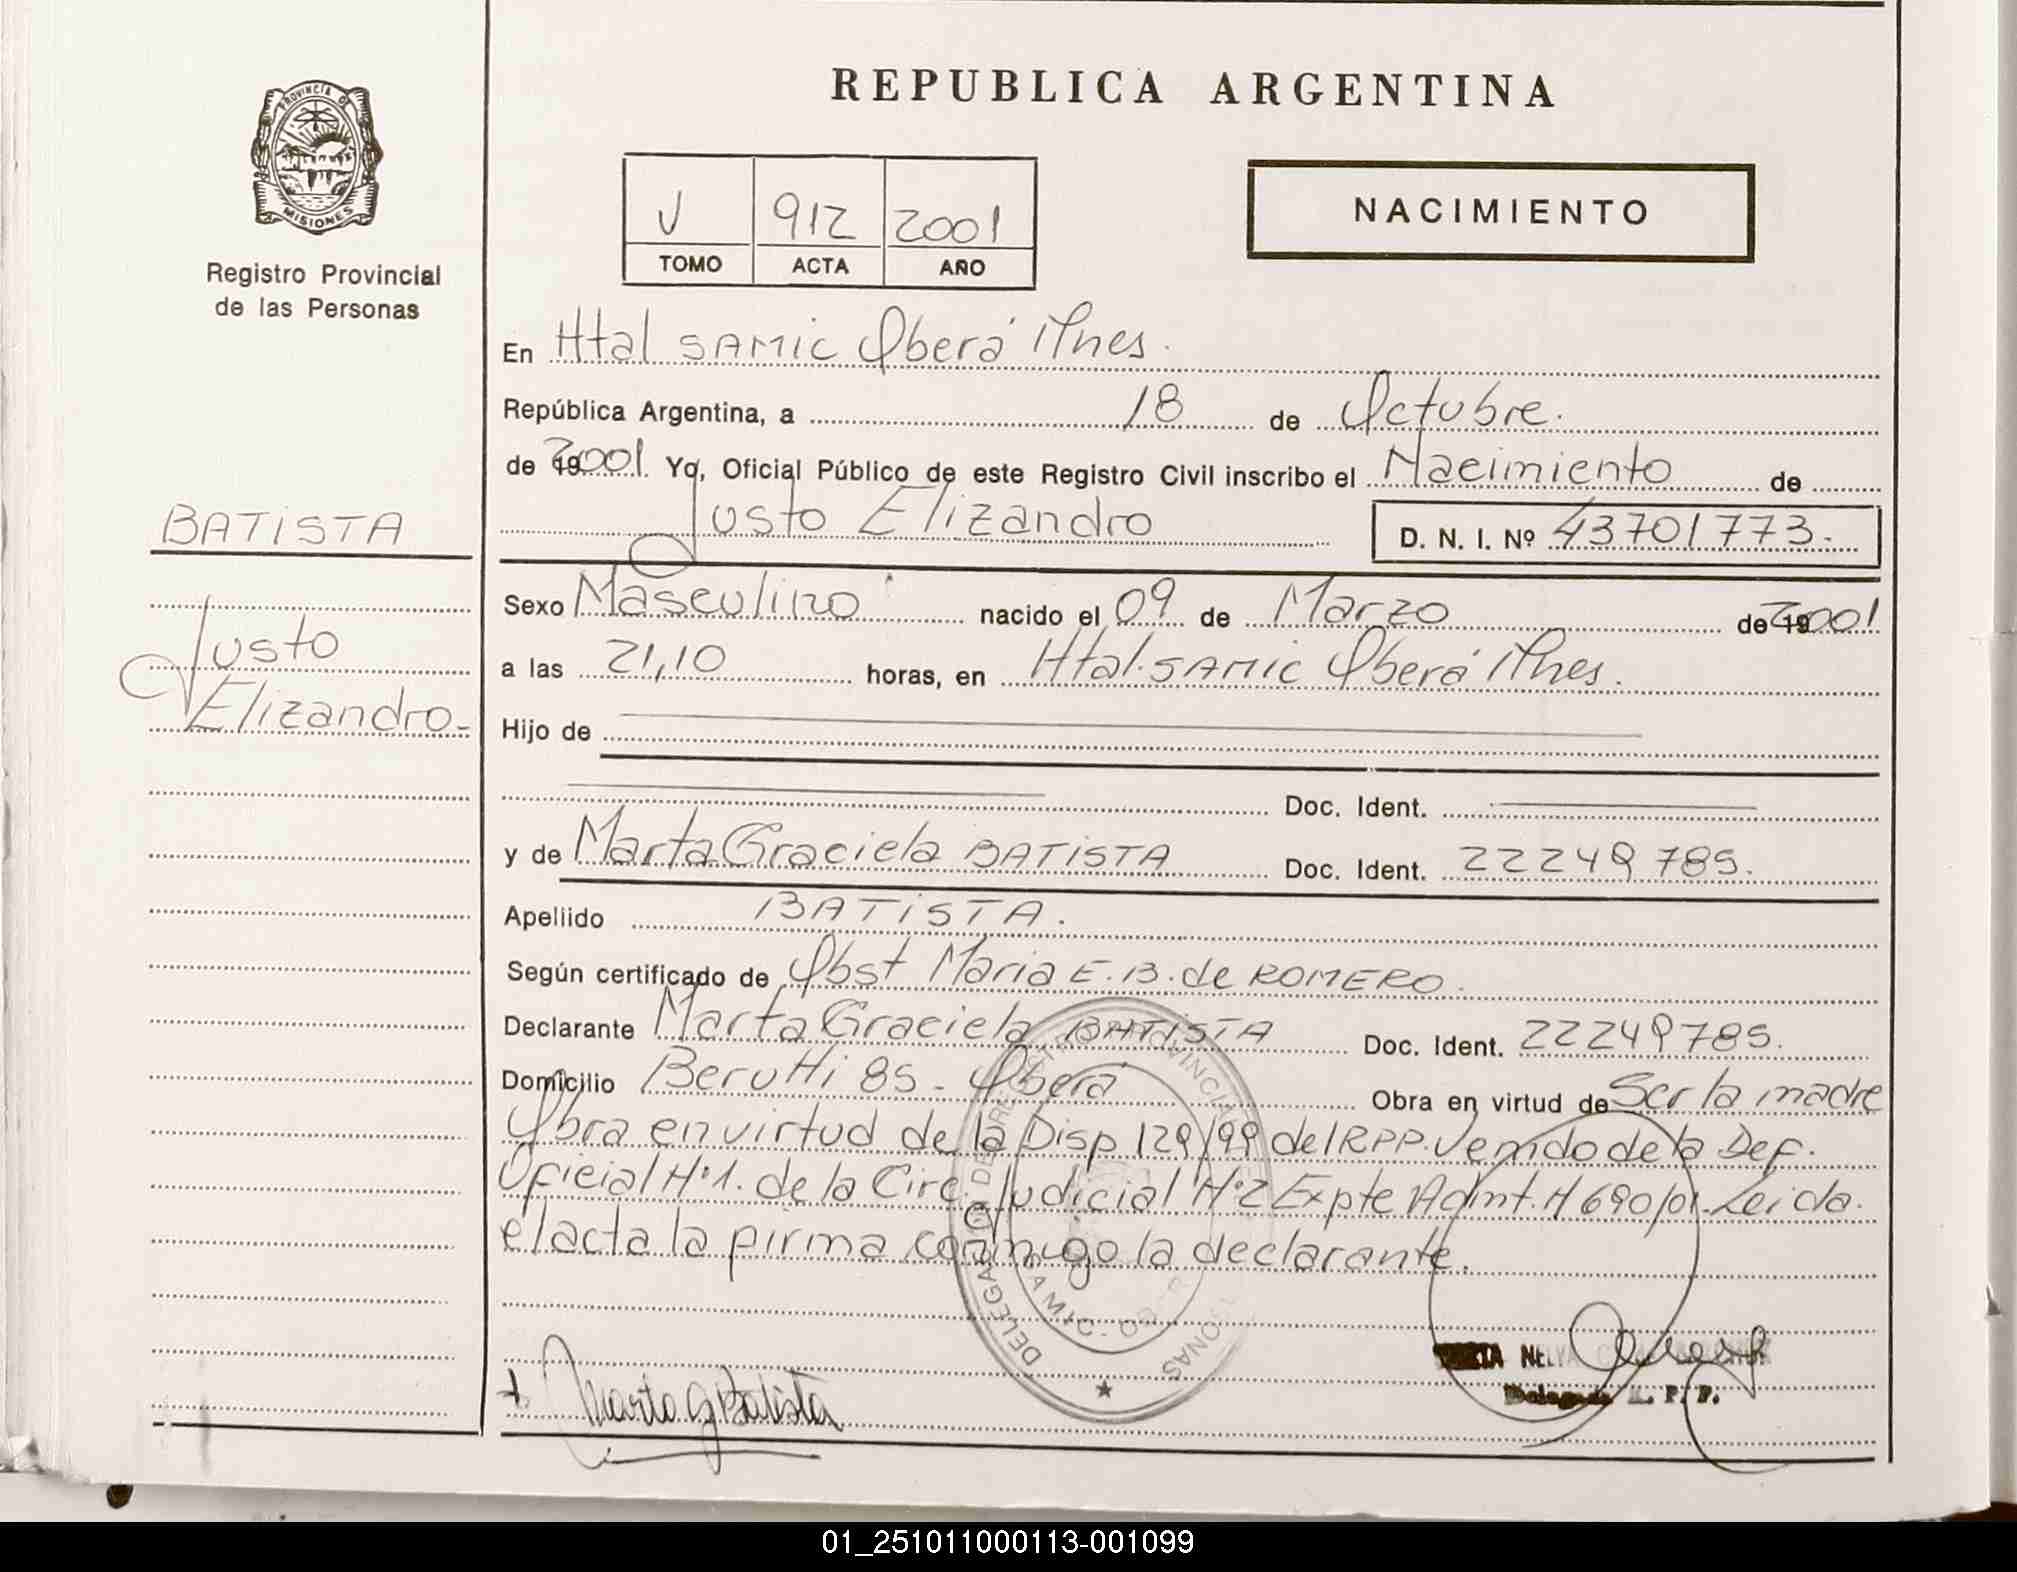 REPUBLICA ARGENTINA
PROVINCIA DE
MISIONES
Registro Provincial
de las Personas
V 912 2001
TOMO ACTA AÑO
NACIMIENTO
En Htal SAMIC Oberá Mnes.
República Argentina, a 18 de Octubre.
de 2001. Yo, Oficial Público de este Registro Civil inscribo el Nacimiento de
Justo Elizandro
D. N. I. Nº 43701773.
BATISTA
Justo
Elizandro.-
Sexo Masculino nacido el 09 de Marzo de 2001
a las 21,10 horas, en Htal. SAMIC Oberá Mnes.
Hijo de
Doc. Ident.
y de Marta Graciela BATISTA Doc. Ident. 22249785.
Apellido BATISTA.
Según certificado de Obst Maria E. B. de ROMERO.
Declarante Marta Graciela BATISTA Doc. Ident. 22249785.
Domicilio Berutti 85 - Oberá Obra en virtud de Ser la madre
Obra en virtud de la Disp 129/99 del RPP. Venido de la Def.
Oficial Nº1. de la Circ. Judicial Nº2 Expte Admt. N 690/01. Leida
el acta la firma conmigo la declarante.
Marta G Batista
NELVA
Delegada R. P. P.
01_251011000113-001099